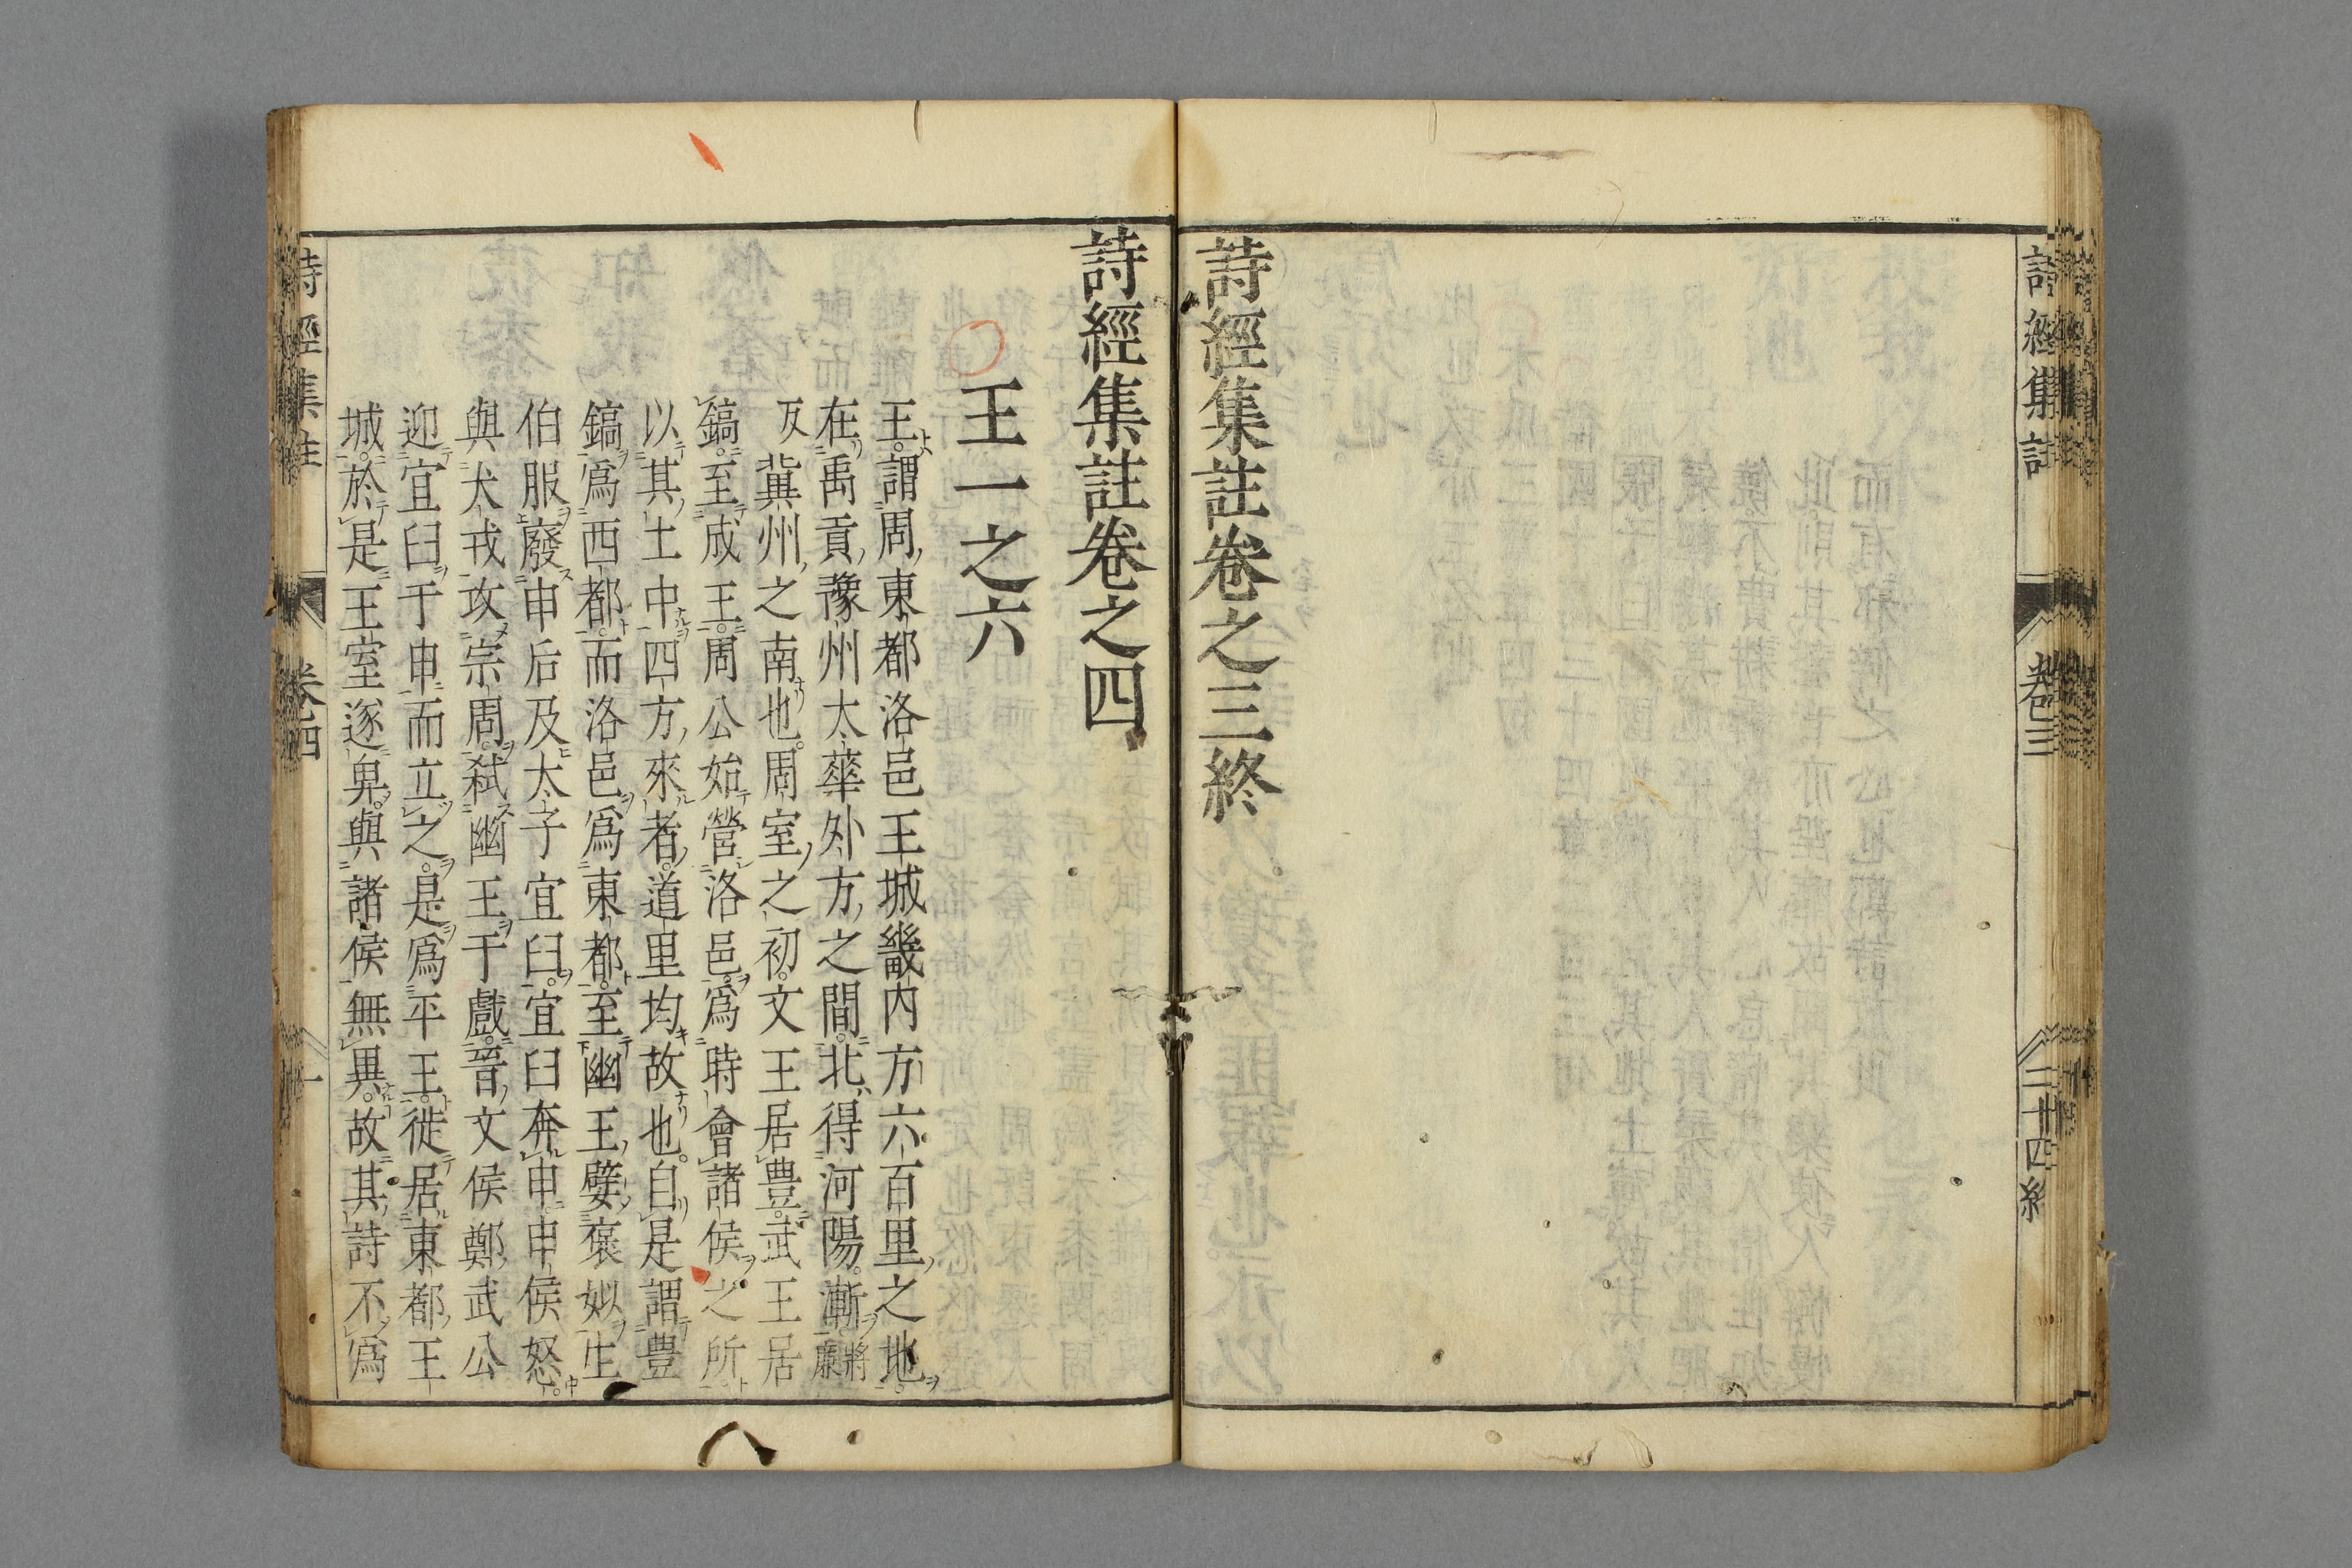 詩經集註
卷三
二十四終
詩經集註卷之三終
詩經集註卷之四
王一之六
王。謂周東都洛邑王城畿內方六百里之地。
在禹貢豫州太華外方之間。北得河陽。漸將廉
反冀州之南也。周室之初。文王居豊。武王居
鎬。至成王。周公始營洛邑。爲時會諸侯之所
以其土中四方來者。道里均故也。自是謂豊
鎬爲西都。而洛邑爲東都。至幽王嬖褒姒生
伯服廢申后及太子宜臼。宜臼奔申。申侯怒。
與犬戎攻宗周。弑幽王于戲。晉文侯鄭武公
迎宜臼于申而立之。是爲平王。徙居東都王
城。於是王室遂卑。與諸侯無異。故其詩不爲
詩經集註
卷四
一